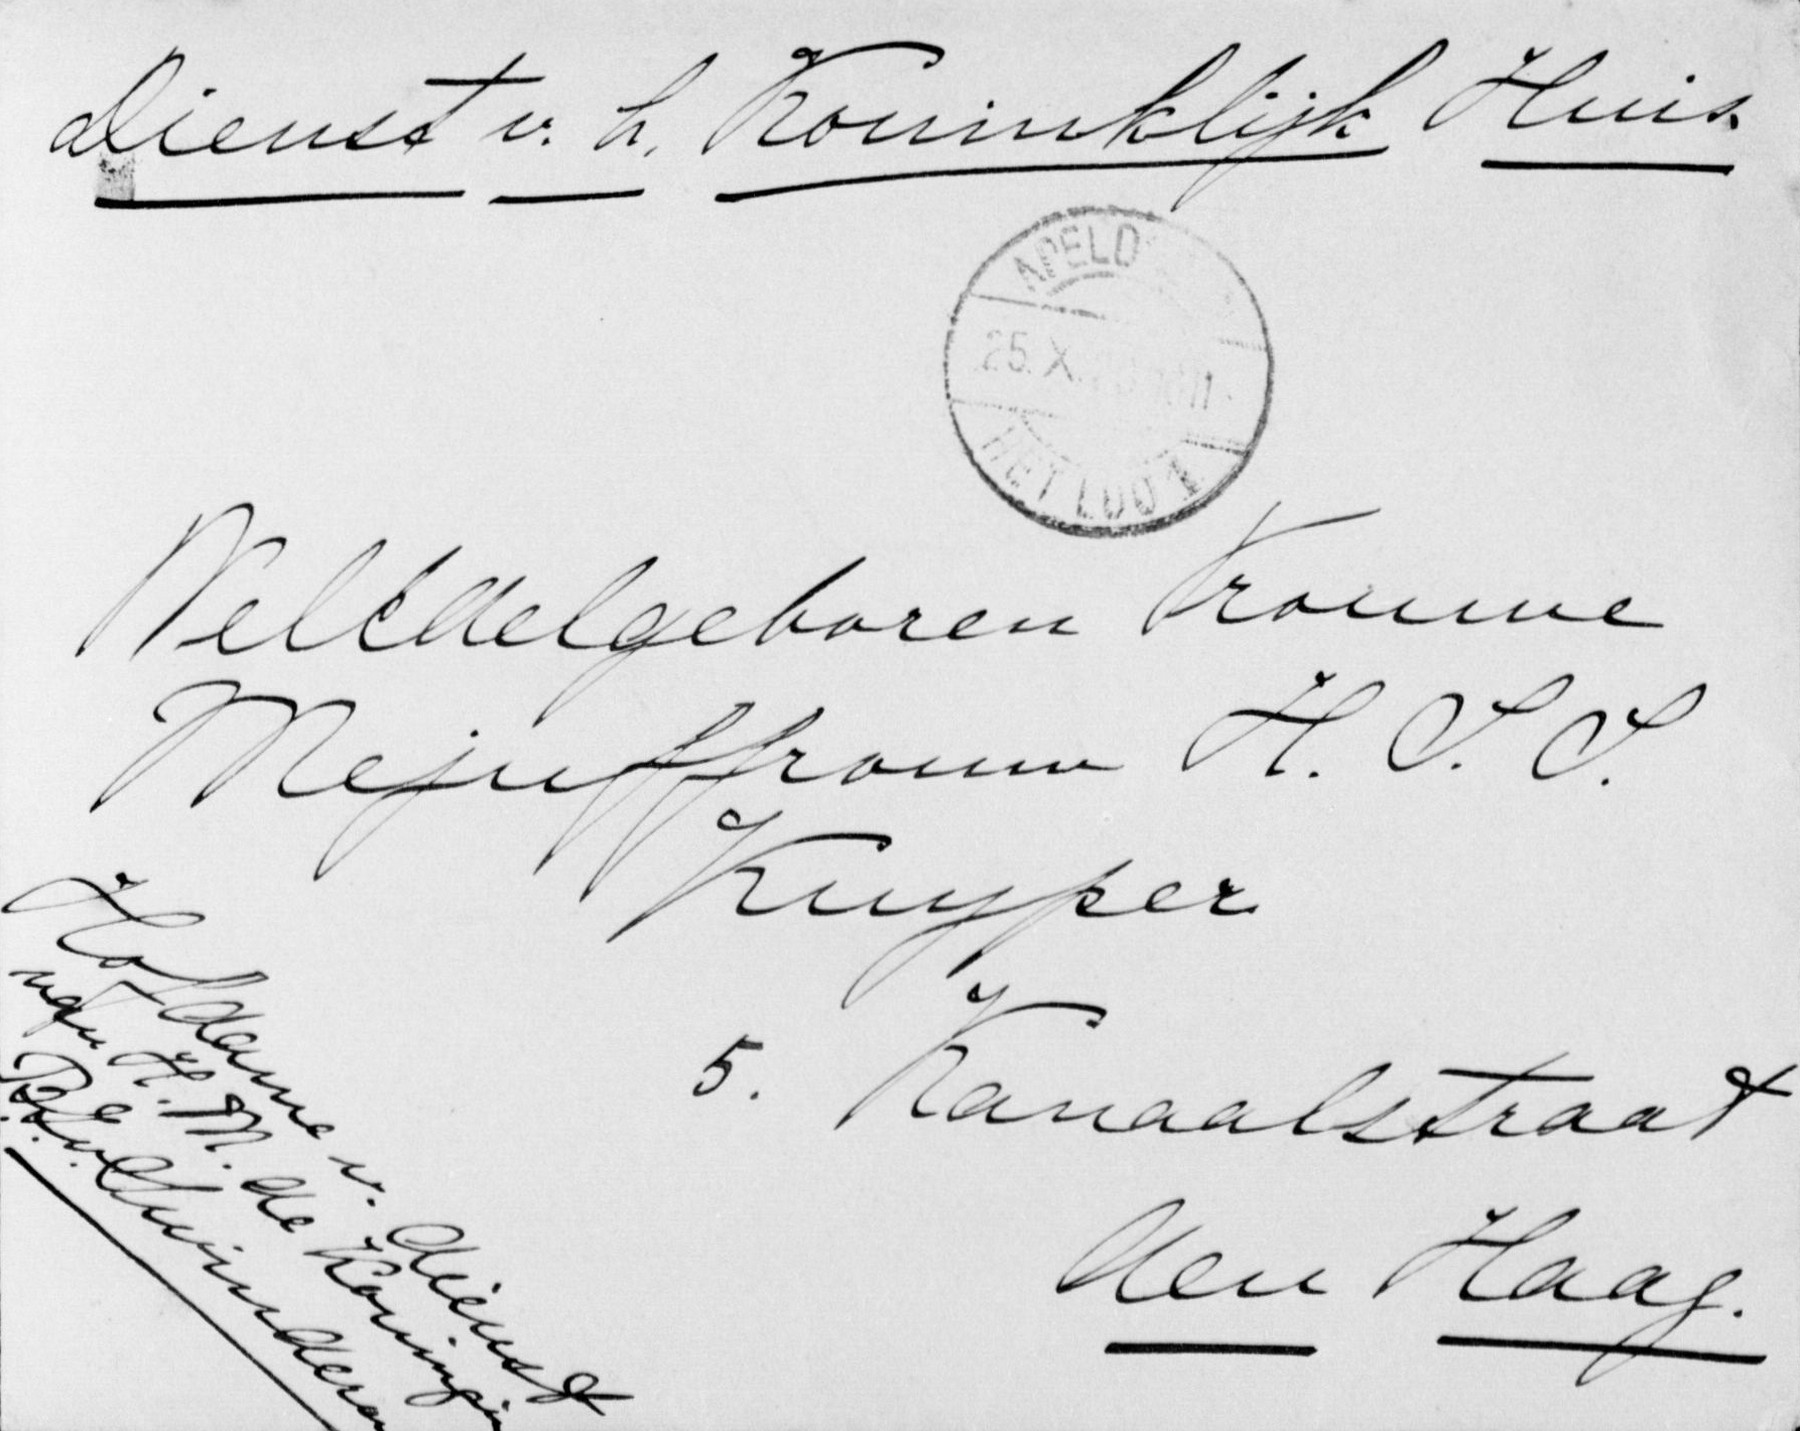 Dienst v. h. Koninklijk Huis.
APELD
25. X. 10-11
HET LOO 1
WelEdelgeboren Vrouwe
Mejuffrouw H. S. S.
Kuyper
5. Kanaalstraat
den Haag.
Hofdame v. dienst
van H. M. de Koningin
v. Swinderen